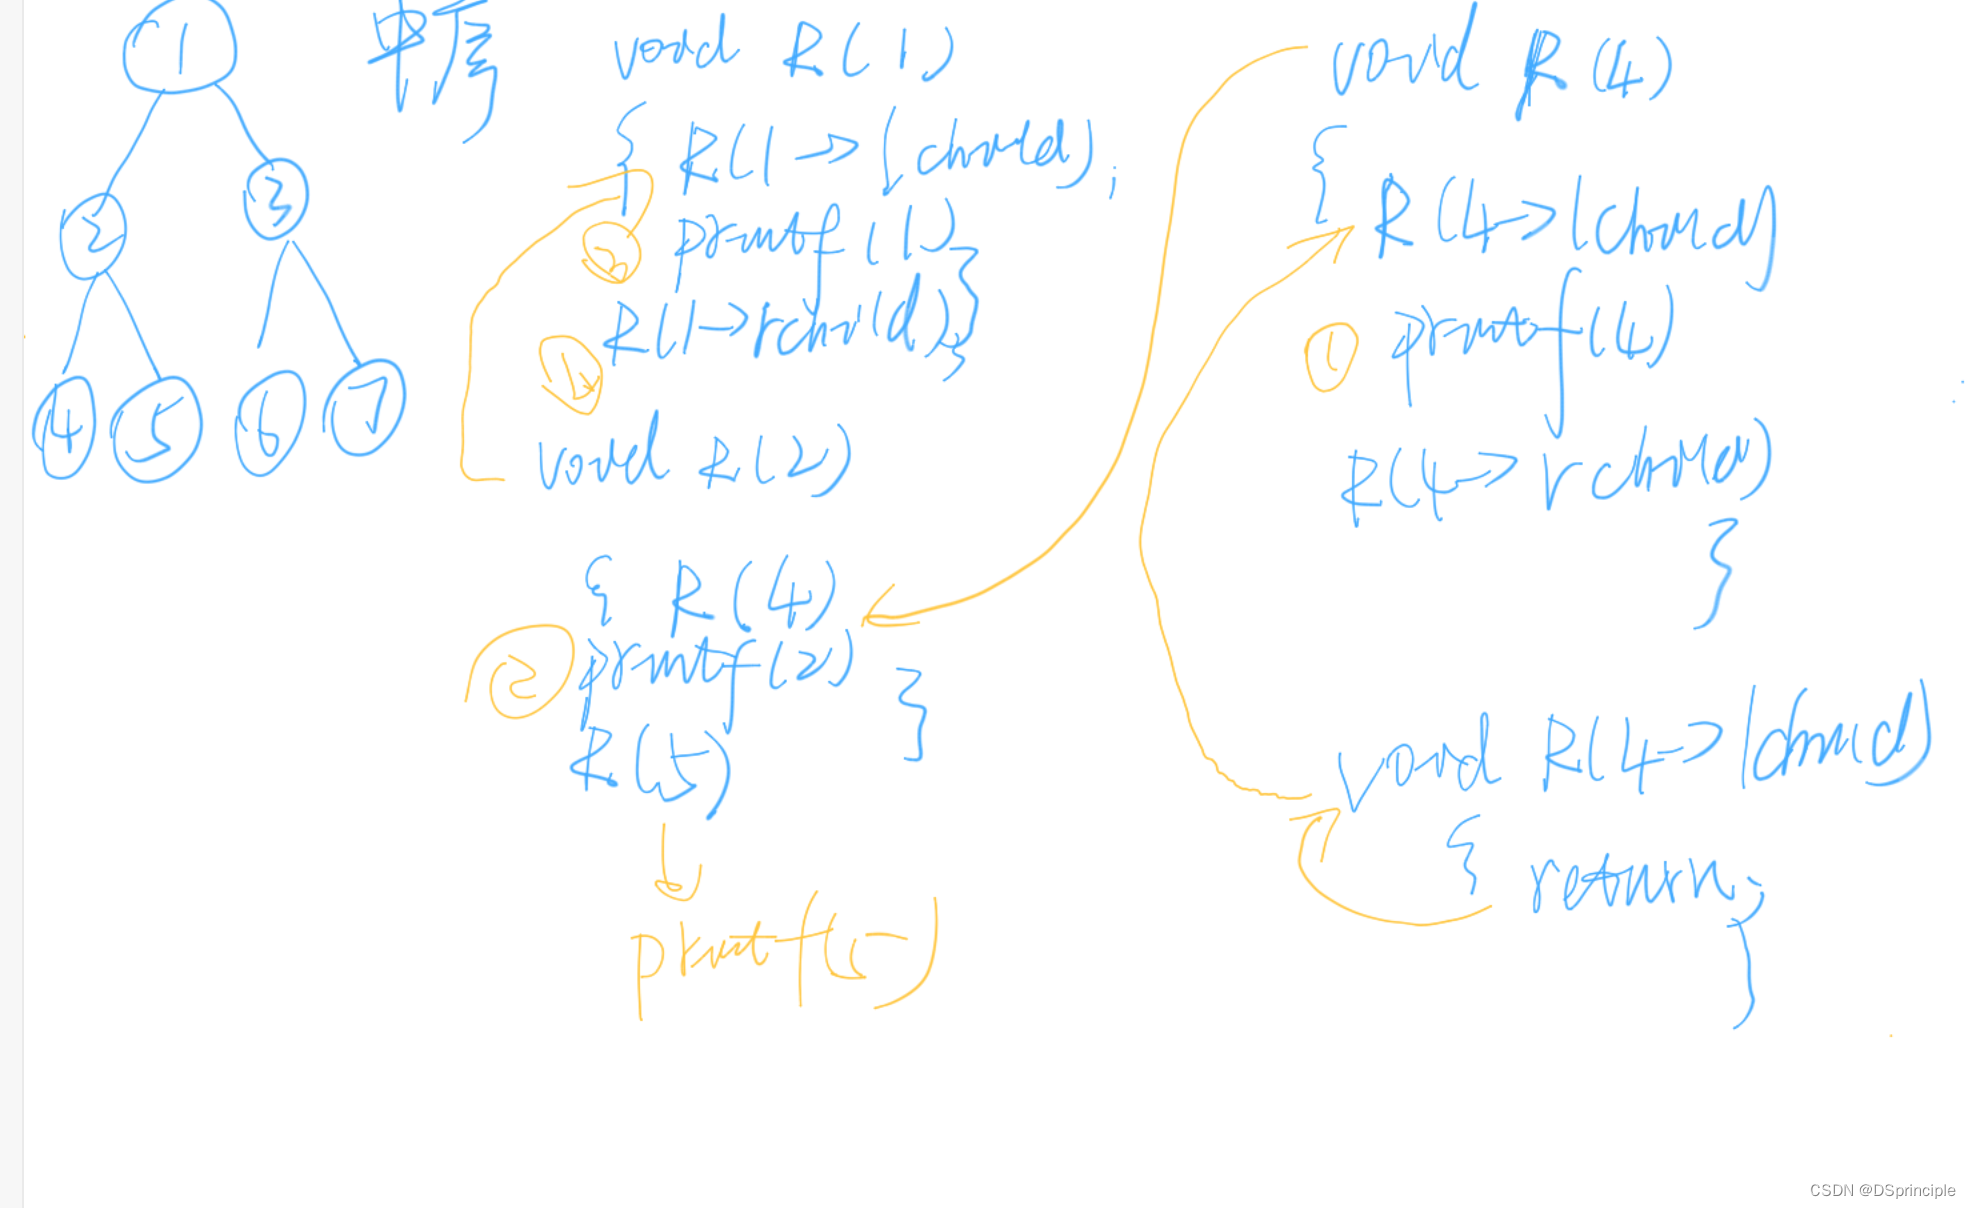 1
2
3
4 5 6 7
中序
void R(1)
{ R(1->lchild);
③ printf(1)
R(1->rchild); }
void R(2)
{ R(4)
② printf(2)
R(5) }
printf(5)
void R(4)
{
R(4->lchild)
① printf(4)
R(4->rchild)
}
void R(4->lchild)
{ return;
}
CSDN @DSprinciple